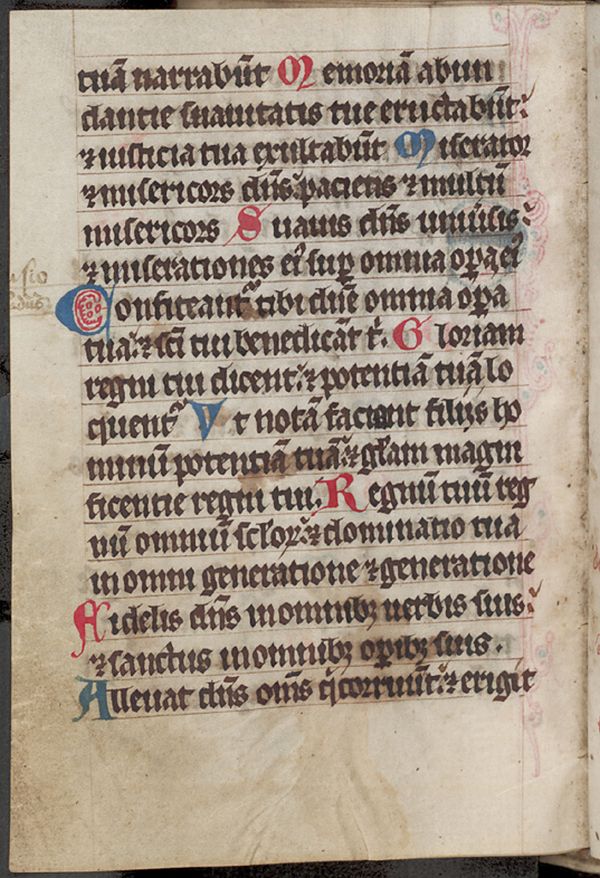 tuā narrabūt Memoriā abun
dantie suauitatis tue eructabūt:
⁊ iusticia tua exultabūt Miserator
⁊ misericors dn̄s: paciens ⁊ multū
misericors Suauis dn̄s uniu̾sis:
⁊ miserationes ei᾽ sup̱ omnia oꝑa ei᾽
Confiteant᷑ tibi dn̄e omnia oꝑa
tua: ⁊ sc̄i tui benedicāt t̾. Gloriam
regni tui dicent: ⁊ potentiā tuā lo
quent᷑ Vt notā faciant filijs ho
minū potentiā tuā: ⁊ glām magni
ficentie regni tui. Regnū tuū reg
nū omniū sc̄loꝝ: ⁊ dominatio tua
in omni generatione ⁊ generatione
Fidelis dn̄s in omnibꝫ uerbis suis:
⁊ sanctus in omnibꝫ oꝑibꝫ suis.
Alleuat dn̄s om̄s q̇ corruūt: ⁊ erigit